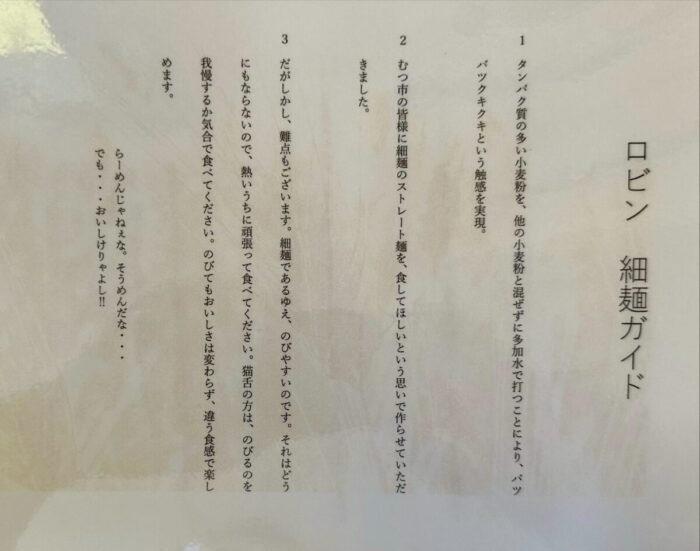 ロビン　細麺ガイド
1　タンパク質の多い小麦粉を、他の小麦粉と混ぜずに多加水で打つことにより、パツ
パツクキクキという触感を実現。
2　むつ市の皆様に細麺のストレート麺を、食してほしいという思いで作らせていただ
きました。
3　だがしかし、難点もございます。細麺であるゆえ、のびやすいのです。それはどう
にもならないので、熱いうちに頑張って食べてください。猫舌の方は、のびるのを
我慢するか気合で食べてください。のびてもおいしさは変わらず、違う食感で楽し
めます。
らーめんじゃねぇな。そうめんだな・・・
でも・・・おいしけりゃよし!!